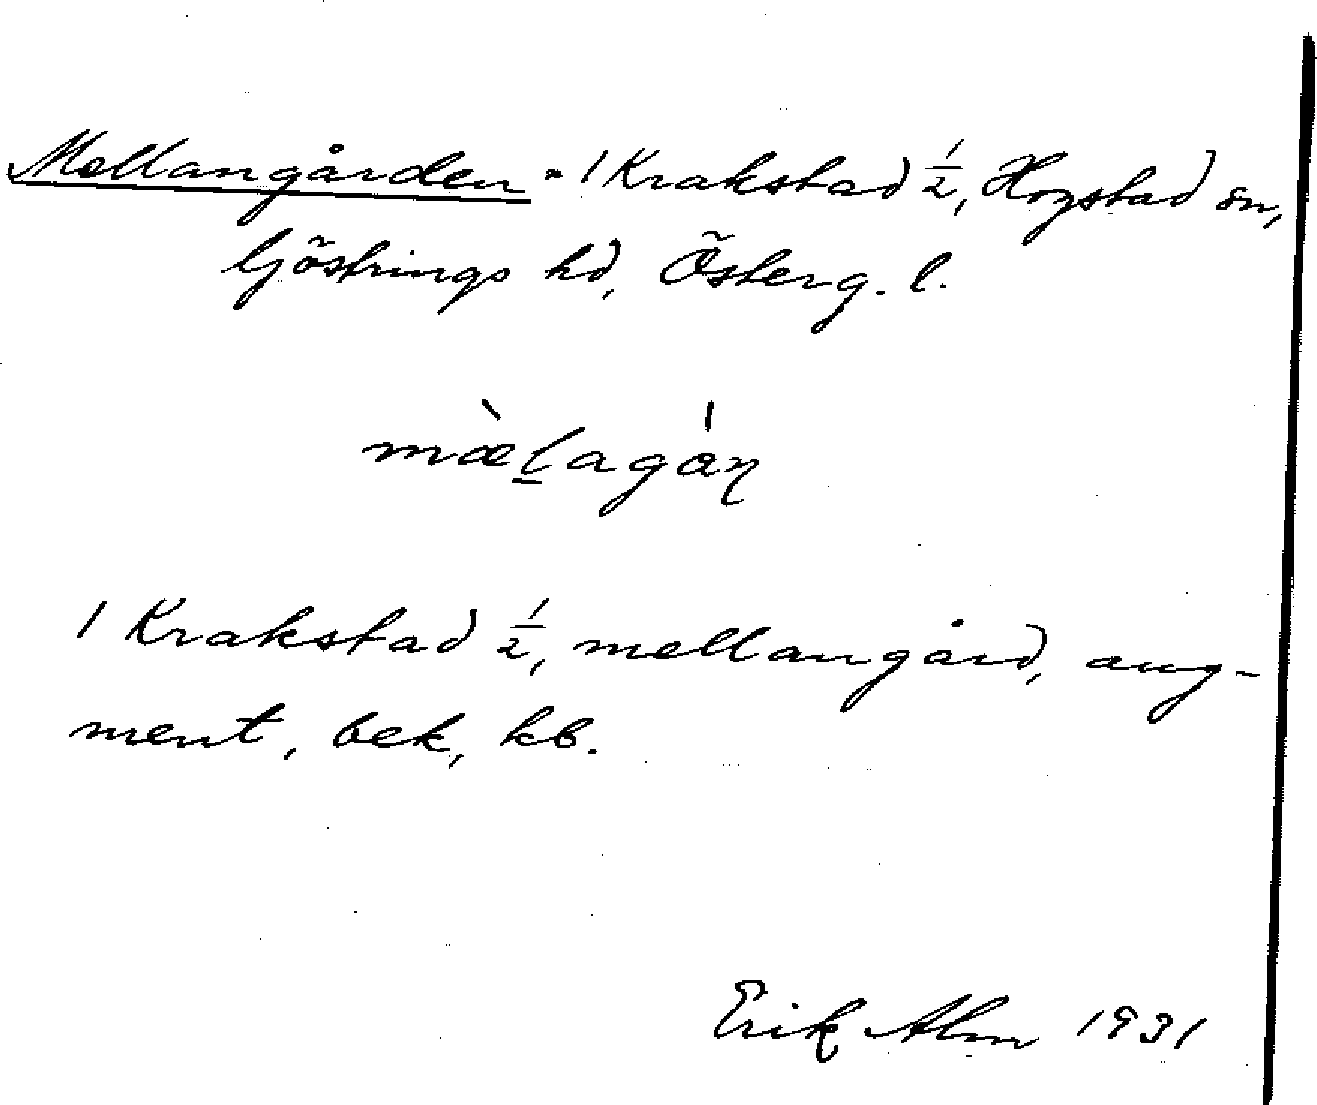 Mellangården = 1 Krakstad ½, Hogstad sn,
Göstrings hd, Österg. l.
mæ̀l̲agá̊ɳ
1 Krakstad ½, mellangård, aug-
ment, bek, kb.
Erik Alm 1931